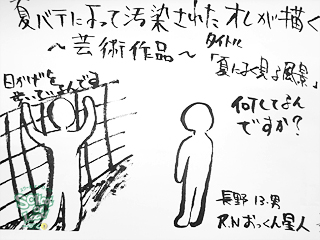 夏バテによって汚染されたオレが描く
～芸術作品～
タイトル
「夏によく見る風景」
日かげを
歩いてるんです
何してるん
ですか?
長野 13・男
R.N おっくん星人